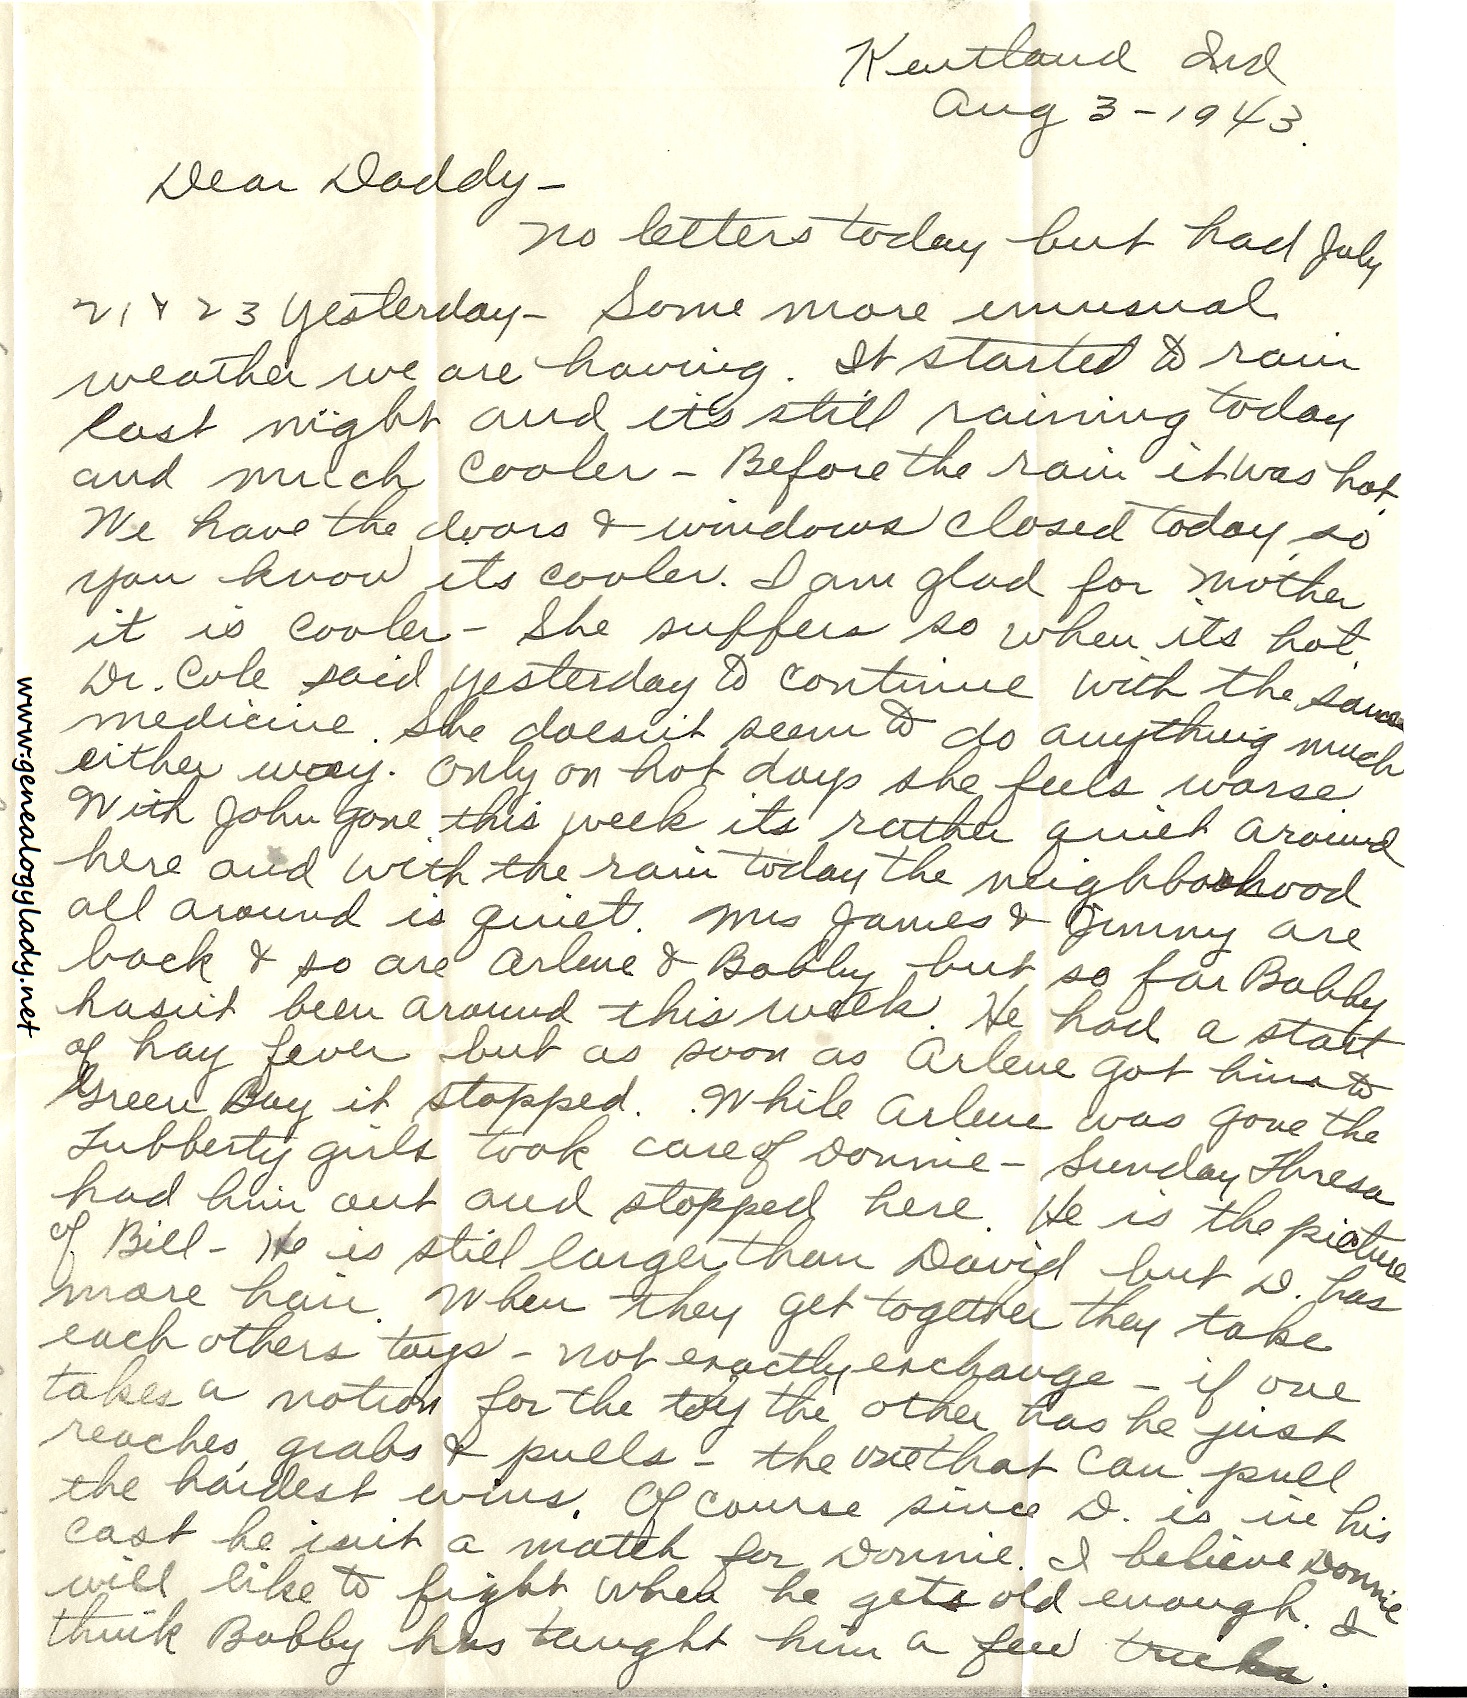 Kentland Ind
Aug 3-1943.
Dear Daddy-
No letters today but had July
21 & 23 yesterday- Some more unusual
weather we are having. It started to rain
last night and its still raining today
and much cooler - Before the rain it was hot.
We have the doors & windows closed today so
you know its cooler. I am glad for Mother
it is cooler - She suffers so when its hot.
Dr. Cole said yesterday to continue with the same
medicine. She doesn't seem to do anything much
either way. Only on hot days she feels worse.
With John gone this week its rather quiet around
here and with the rain today the neighborhood
all around is quiet. Mrs James & Jimmy are
back & so are Arlene & Bobby but so far Bobby
hasn't been around this week. He had a start
of hay fever but as soon as Arlene got him to
Green Bay it stopped. While Arlene was gone the
Lubberty girls took care of Donnie - Sunday Thresa
had him out and stopped here. He is the picture
of Bill - He is still larger than David but D. has
more hair. When they get together they take
each others toys - not exactly exchange - if one
takes a notion for the toy the other has he just
reaches, grabs & pulls - the one that can pull
the hardest wins. Of course since D. is in his
cast he isn't a match for Donnie. I believe Donnie
will like to fight when he gets old enough. I
think Bobby has taught him a few tricks.
www.genealogylady.net